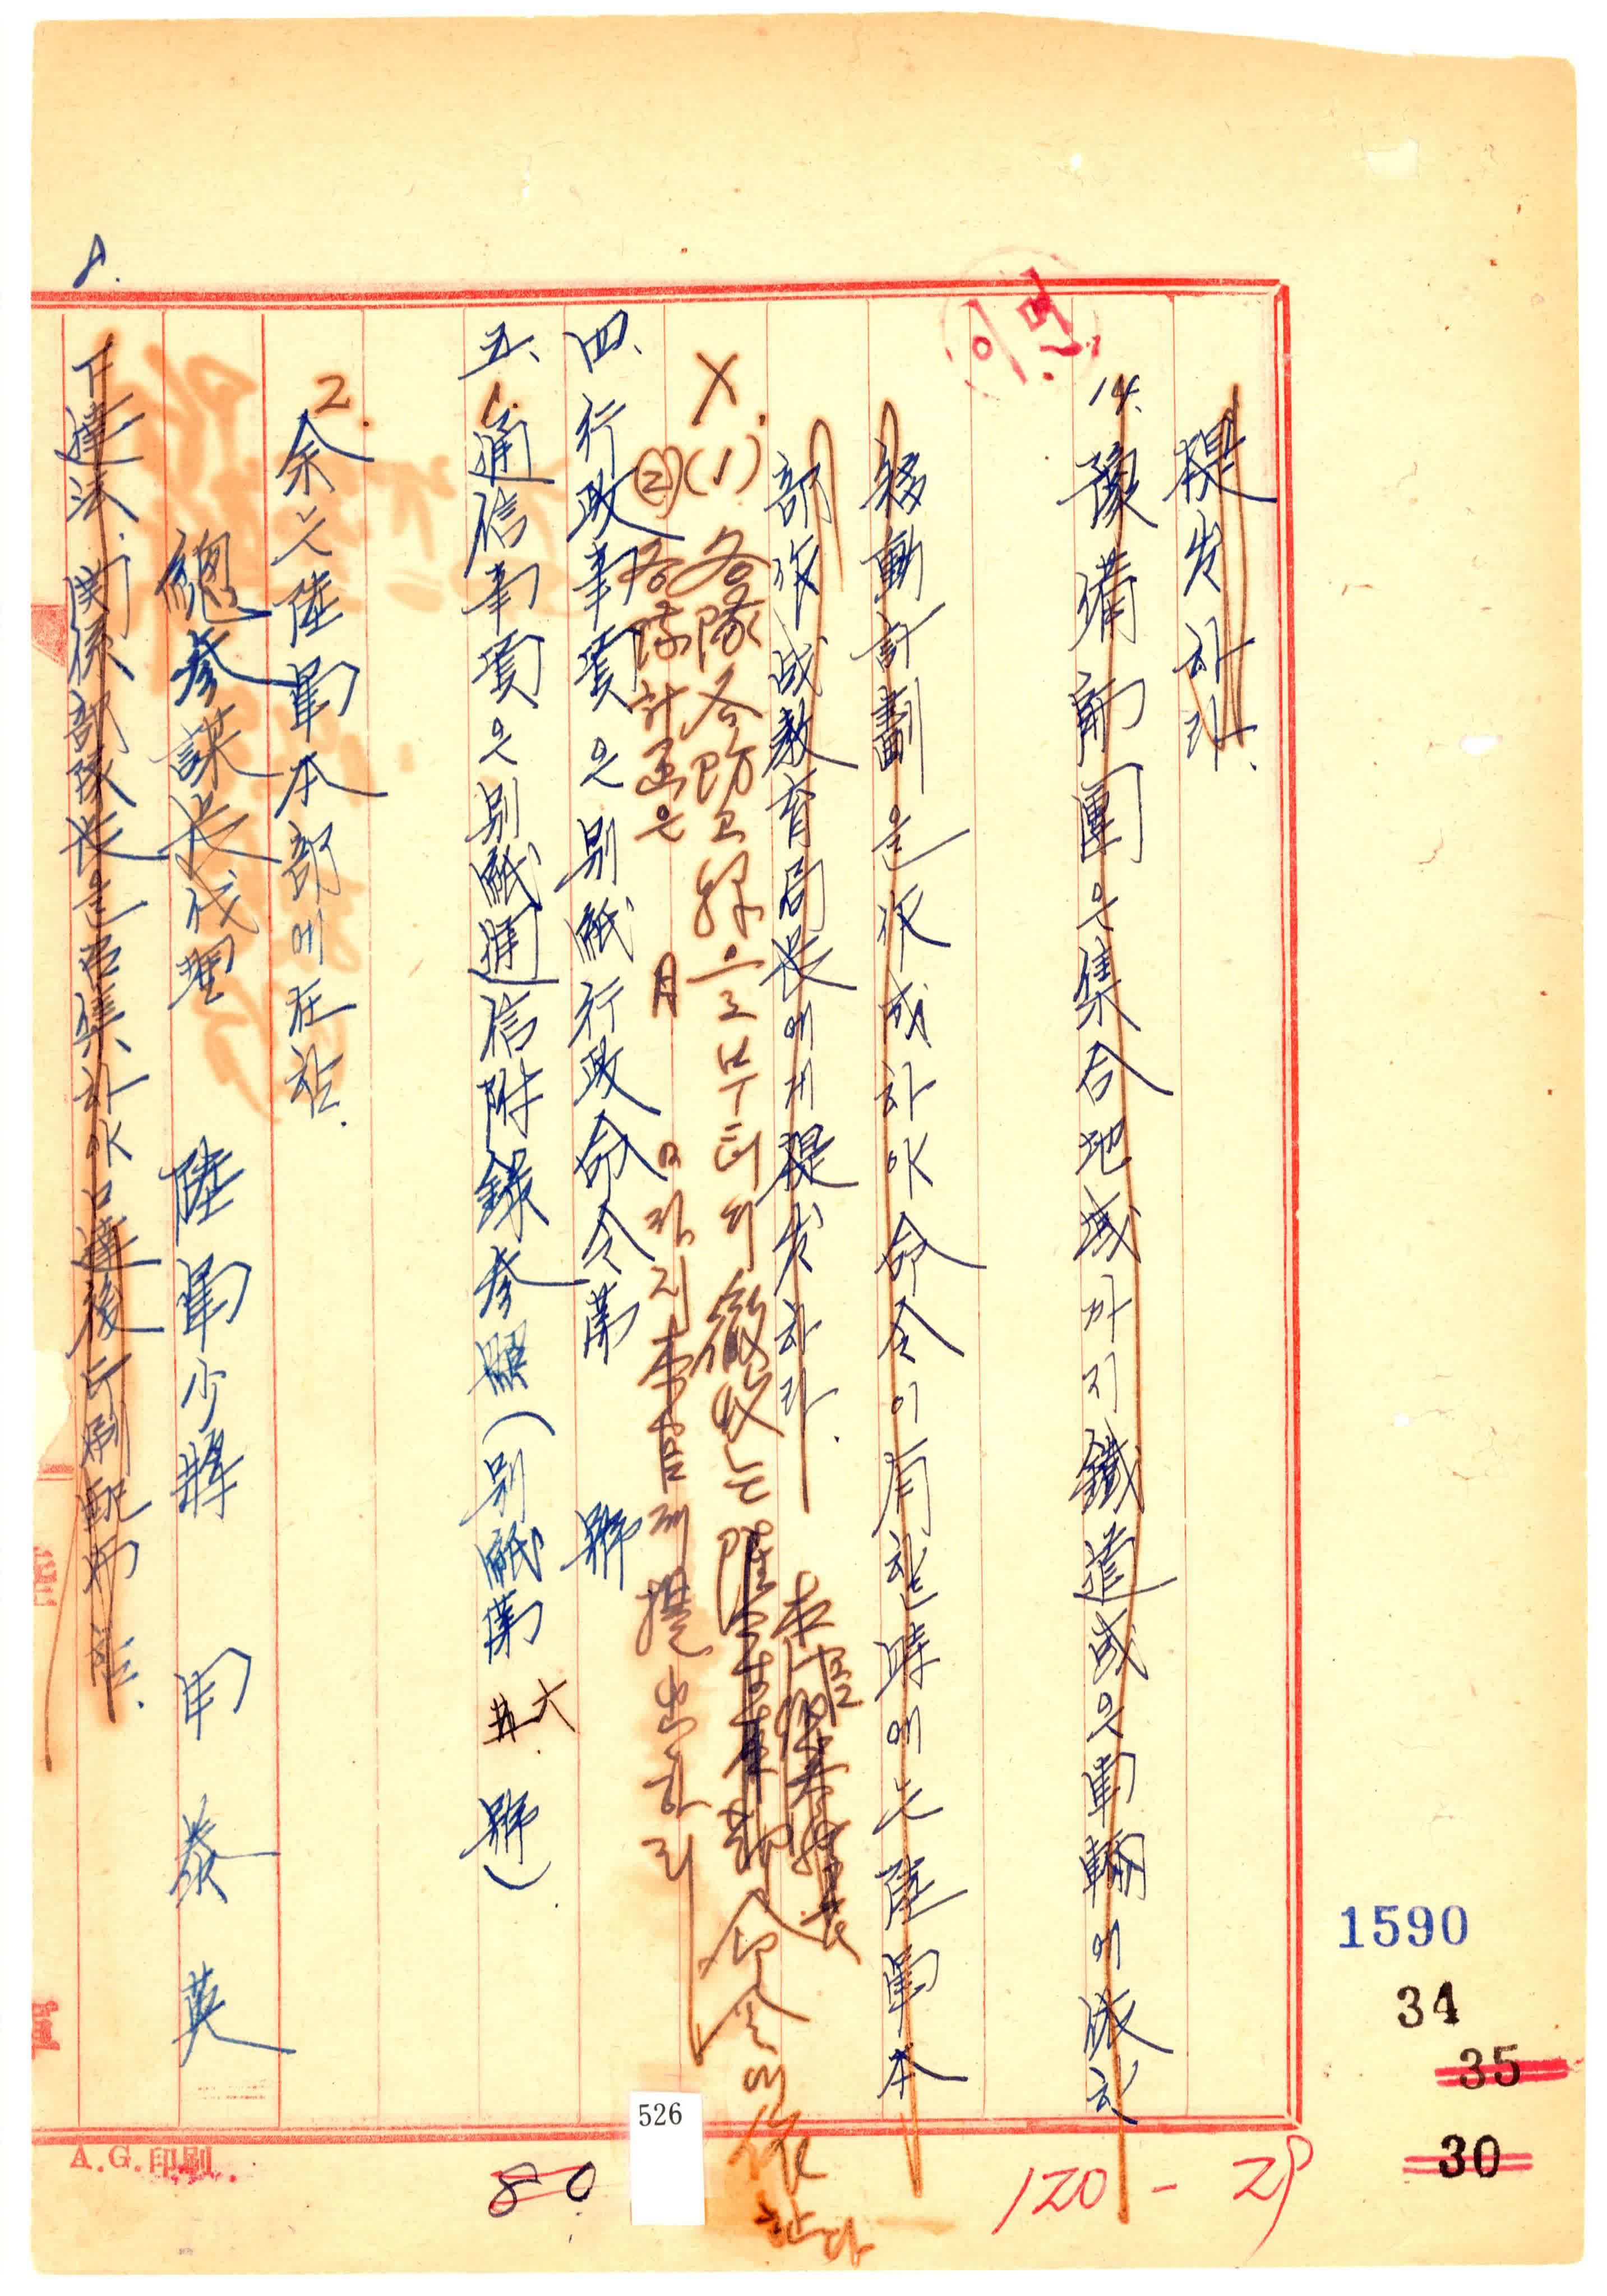 提出하라.
14. 豫備師團은集合地域까지鐵道或은車輛에依한
移動計劃을作成하야命令이有할時에는陸軍本
部作成敎育局長에게提出하라.
X.(1) 各隊各防口線으로부터의 撤收는 命令에依한다
(2) 各隊計画은 月 日까지 本官에게 提出하라
四、行政事項은別紙行政命令第 號
五、1. 通信事項은別紙通信附錄參照(別紙第 六 號)
2. 余는陸軍本部에在함.
總參謀長代理 陸軍少將 申泰英
下達法. 関係部隊長을召集하야口達後印刷配布함.
이면
8.
A.G.印刷
80
526
120-29
1590
34
35
30